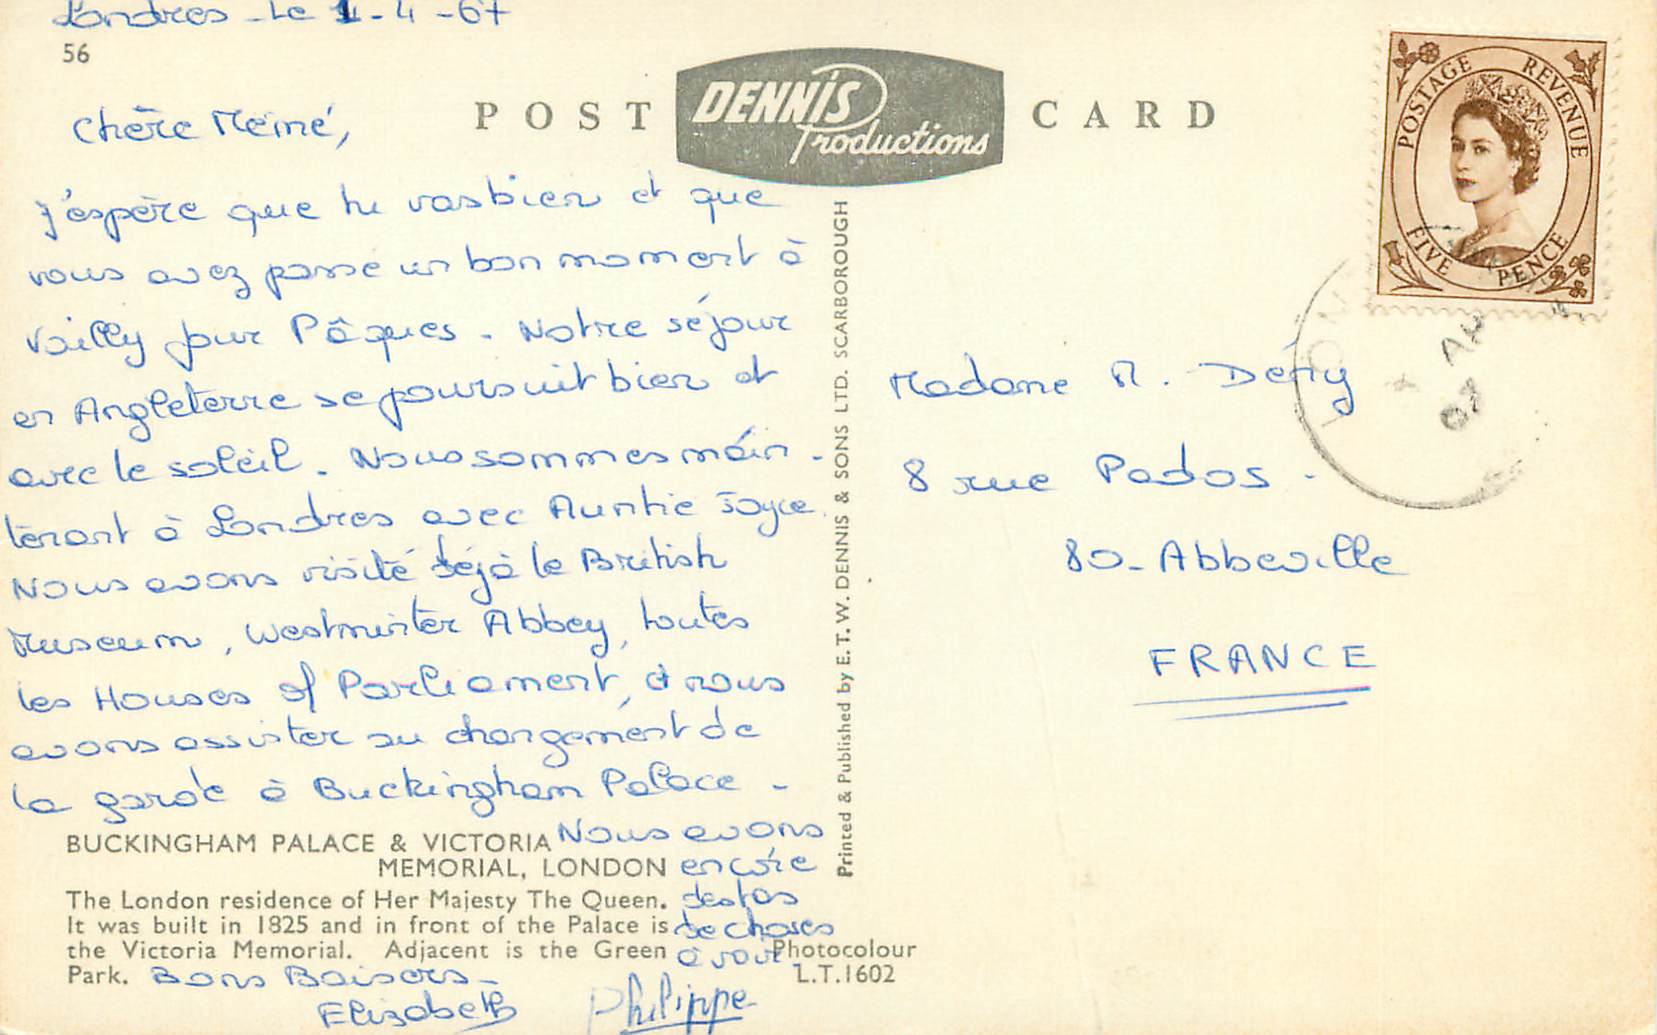 Londres - Le 1 - 4 - 67
56
POST DENNIS Productions CARD
POSTAGE REVENUE
FIVE PENCE
Chère Mémé,
J'espère que tu vas bien et que
vous avez passé un bon moment à
Vailly pour Pâques. Notre séjour
en Angleterre se poursuit bien et
avec le soleil. Nous sommes main-
tenant à Londres avec Auntie Joyce.
Nous avons visité déjà le British
Museum, Westminster Abbey, toutes
les Houses of Parliament, et nous
avons assister au changement de
la garde à Buckingham Palace -
Nous avons
encore
des tas
de choses
à voir
Bons Baisers -
Elizabeth Philippe
BUCKINGHAM PALACE & VICTORIA
MEMORIAL, LONDON
The London residence of Her Majesty The Queen.
It was built in 1825 and in front of the Palace is
the Victoria Memorial. Adjacent is the Green
Park.
Photocolour
L.T.1602
Printed & Published by E. T. W. DENNIS & SONS LTD. SCARBOROUGH
Madame R.
8 rue Pados -
80 - Abbeville
FRANCE